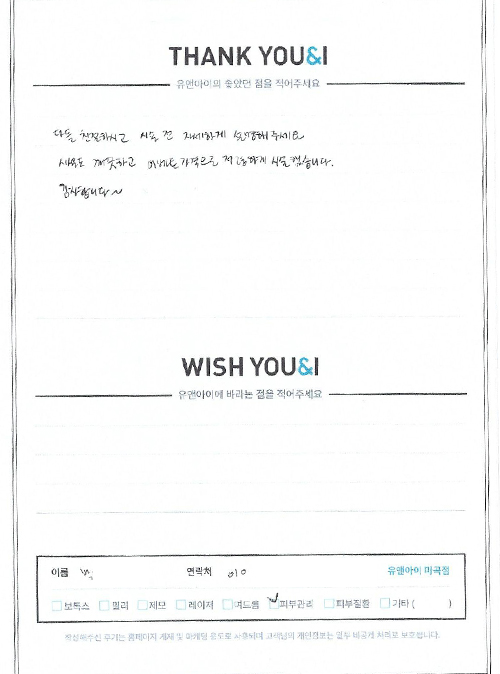 THANK YOU&I
유앤아이의 좋았던 점을 적어주세요
다들 친절하시고 시술 전 자세하게 설명해주세요
시설도 깨끗하고 이벤트가격으로 저렴하게 시술했습니다.
감사합니다~
WISH YOU&I
유앤아이에 바라는 점을 적어주세요
이름 연락처 010 유앤아이 마곡점
보톡스 필러 제모 레이저 여드름 피부관리 피부질환 기타 ( )
작성해주신 후기는 홈페이지 게재 및 마케팅 용도로 사용되며 고객님의 개인정보는 일부 비공개 처리로 보호됩니다.